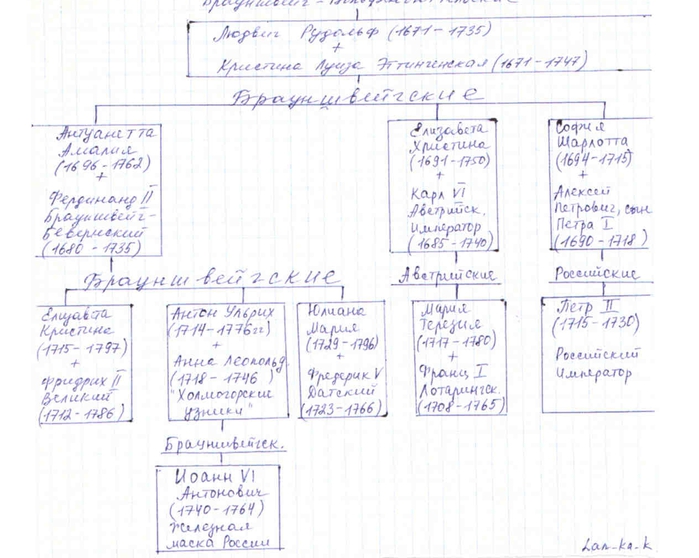 Людвиг Рудольф (1671-1735)
+
Кристина Луиза Эттингенская (1671-1747)
Брауншвейгские
Антуанетта
Амалия
(1696-1762)
+
Фердинанд II
Брауншвейг-
Бевернский
(1680-1735)
Елизавета
Христина
(1691-1750)
+
Карл VI
Австрийск.
Император
(1685-1740)
София
Шарлотта
(1694-1715)
+
Алексей
Петрович, сын
Петра I
(1690-1718)
Брауншвейгские
Австрийские
Российские
Елизавета
Кристина
(1715-1797)
+
Фридрих II
Великий
(1712-1786)
Антон Ульрих
(1714-1776гг)
+
Анна Леопольд.
(1718-1746)
"Холмогорские
узники"
Юлиана
Мария
(1729-1796)
+
Фредерик V
Датский
(1723-1766)
Мария
Терезия
(1717-1780)
+
Франц I
Лотарингск.
(1708-1765)
Петр II
(1715-1730)
Российский
Император
Брауншвейгск.
Иоанн VI
Антонович
(1740-1764)
Железная
маска России
Lan-ka-k